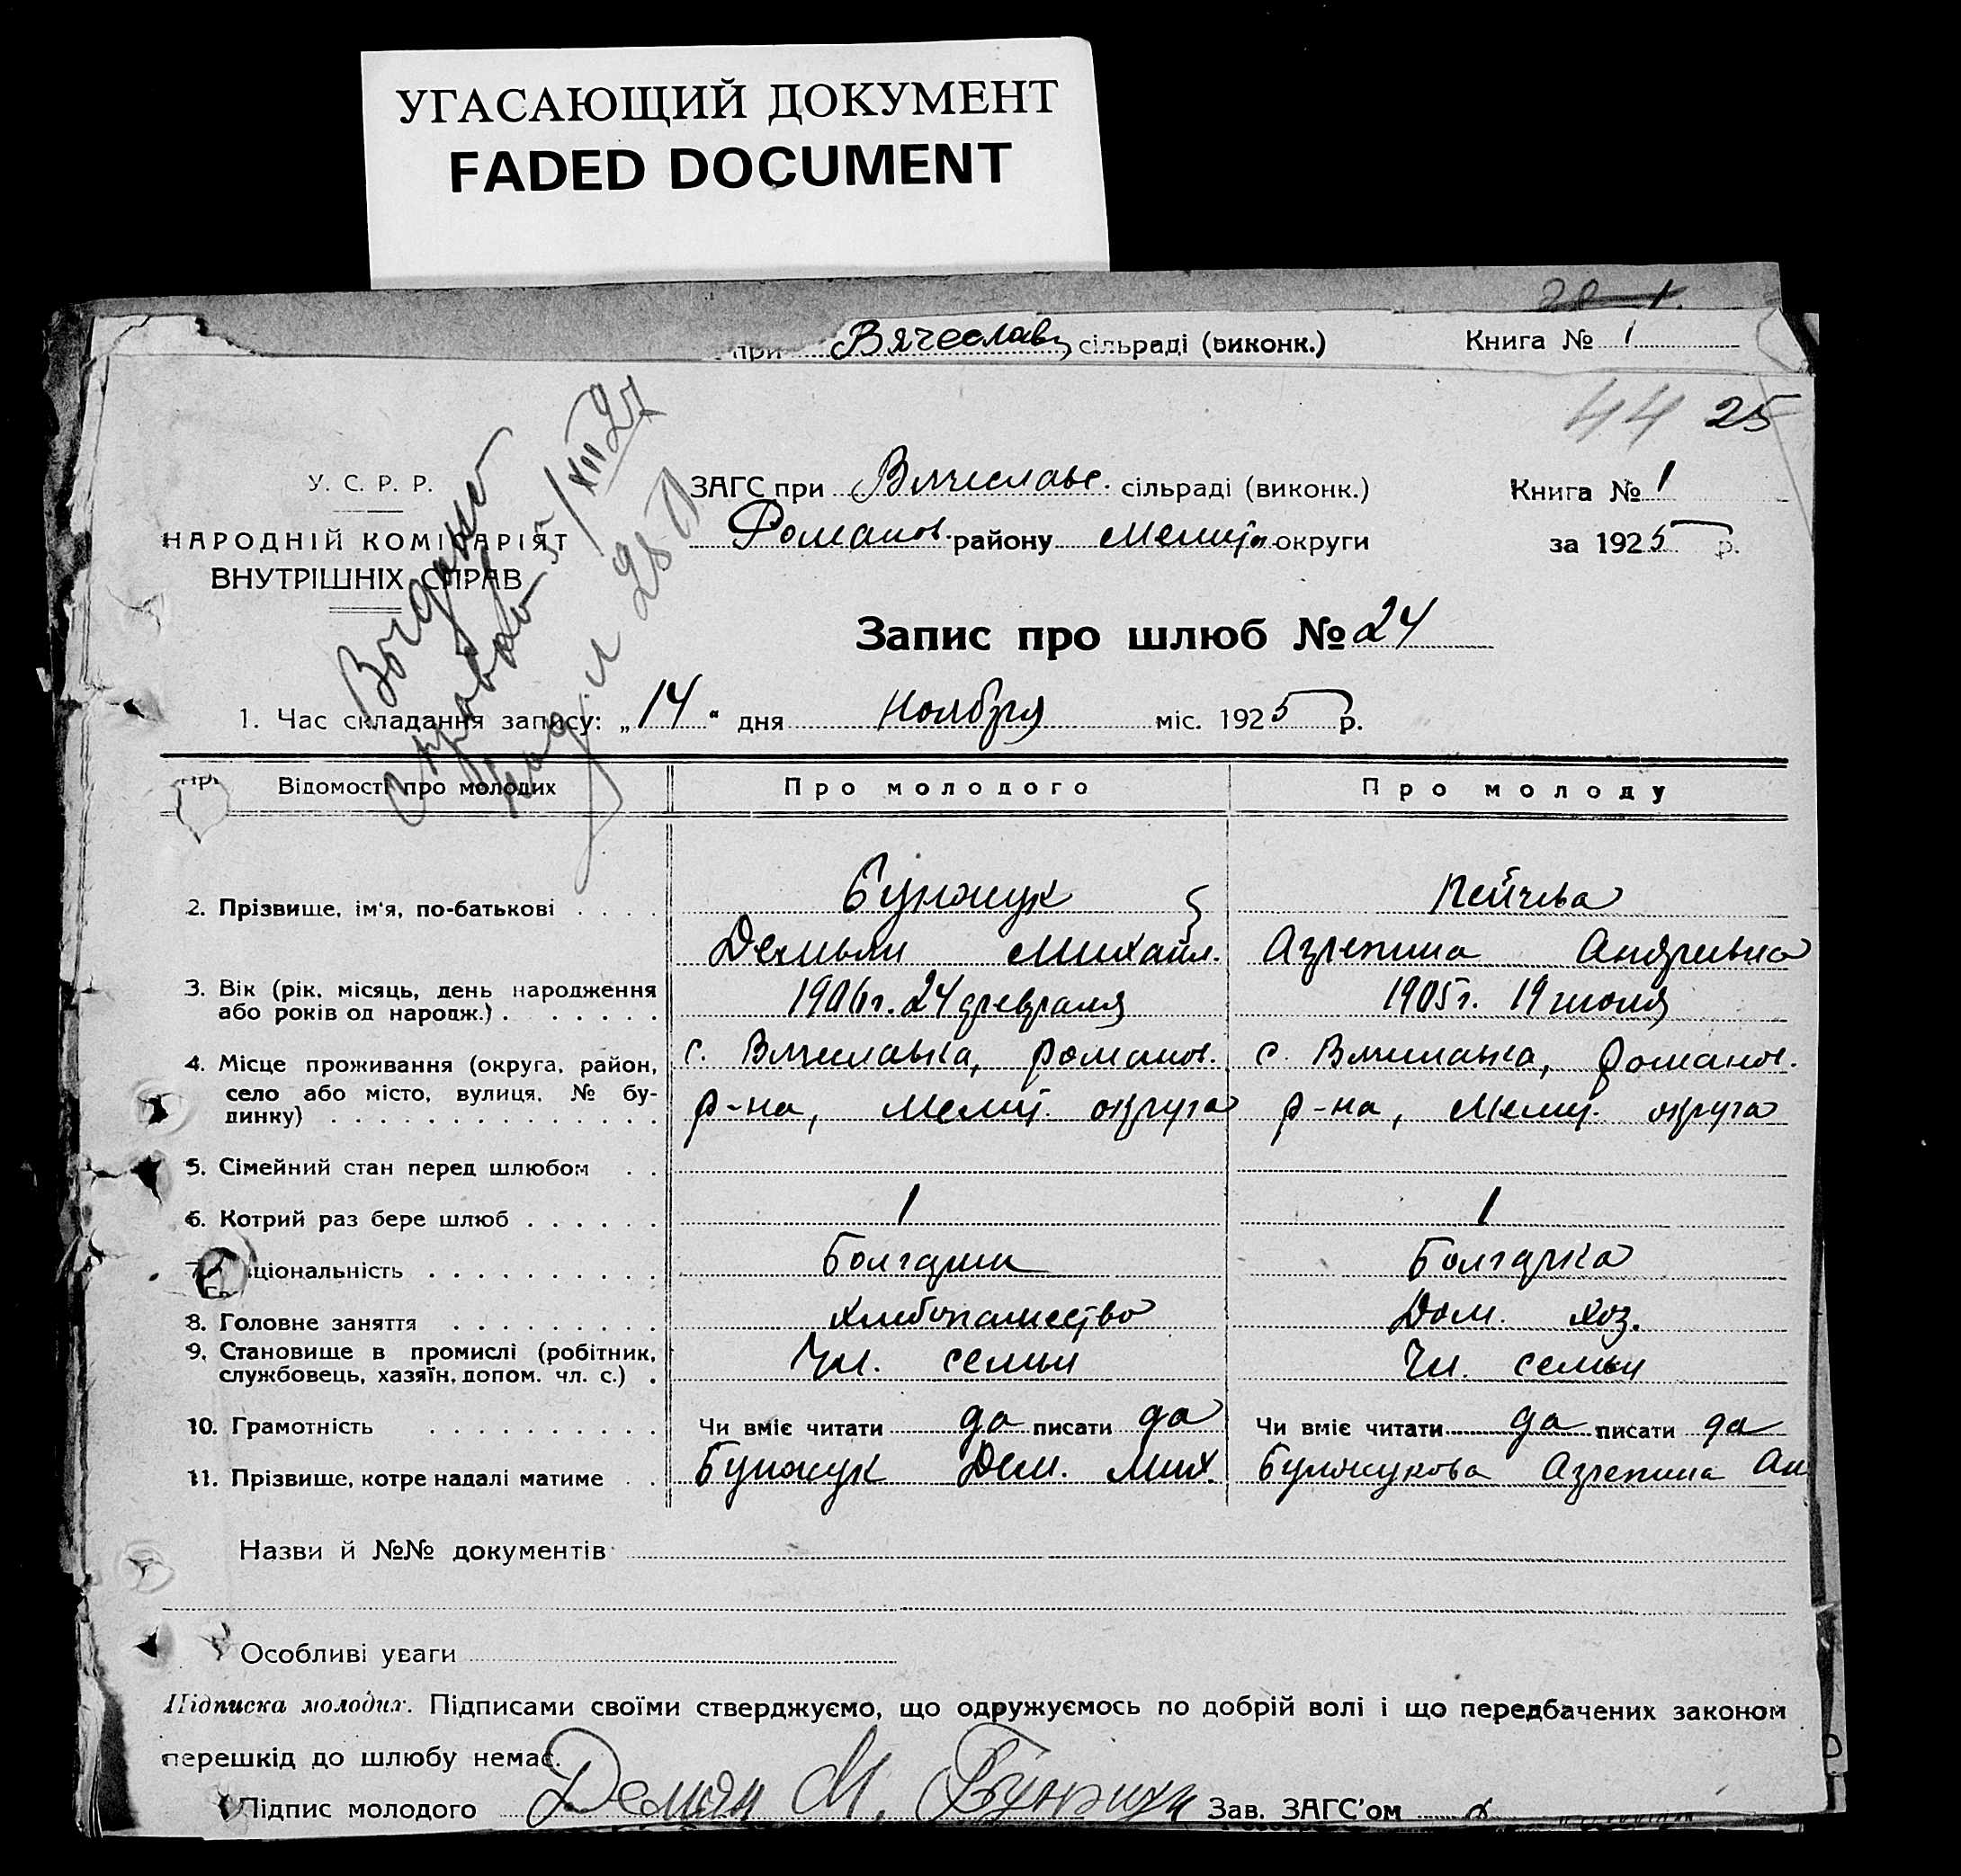 УГАСАЮЩИЙ ДОКУМЕНТ
FADED DOCUMENT
28 1.
при Вячеславс сільраді (виконк.) Книга № 1
44 25
У. С. Р. Р.
НАРОДНІЙ КОМІСАРІЯТ
ВНУТРІШНІХ СПРАВ
ЗАГС при Вячеславс. сільраді (виконк.) Книга № 1
Романов. району Мелит. округи за 1925 р.
Запис про шлюб № 24
1. Час складання запису: „14" дня ноября міс. 1925 р.
Відомості про молодих Про молодого Про молоду
2. Прізвище, ім'я, по-батькові . . . . Бунжук Пейчева
Демьян Михайл. Агрепина Андреевна
3. Вік (рік, місяць, день народження 1906 г. 24 февраля 1905 г. 19 июля
або років од народж.) . . . . . .
4. Місце проживання (округа, район, с. Вячеславка, Романов. с. Вячеславка, Романов.
село або місто, вулиця, № бу-
динку) . . . . . . . . . . . . . . р-на, Мелит. округа р-на, Мелит. округа
5. Сімейний стан перед шлюбом . .
6. Котрий раз бере шлюб . . . . . . 1 1
ціональність . . . . . . . . . . Болгарин Болгарка
8. Головне заняття . . . . . . . . . хлебопашество Дом. хоз.
9. Становище в промислі (робітник, Чл. семьи Чл. семьи
службовець, хазяїн, допом. чл. с.) .
10. Грамотність . . . . . . . . . . Чи вміє читати да писати да Чи вміє читати да писати да
11. Прізвище, котре надалі матиме . . Бунжук Дем. Мих. Бунжукова Агрепина Ан
Назви й №№ документів
Особливі уваги
Підписка молодих. Підписами своїми стверджуємо, що одружуємось по добрій волі і що передбачених законом
перешкід до шлюбу немає.
Підпис молодого Демян М. Зав. ЗАГС'ом